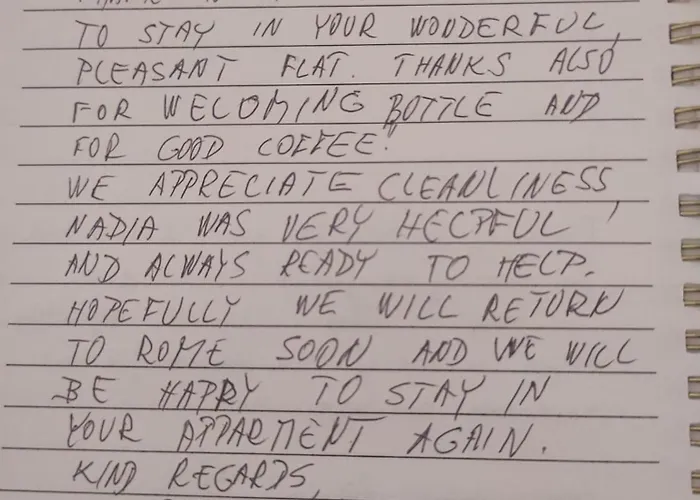 TO STAY IN YOUR WOUDERFUL,
PLEASANT FLAT. THANKS ALSO
FOR WELOMING BOTTLE AND
FOR GOOD COFFEE!
WE APPRECIATE CLEANLINESS,
NADIA WAS VERY HELPFUL
AND ALWAYS READY TO HELP.
HOPEFULLY WE WILL RETURN
TO ROME SOON AND WE WILL
BE HAPPY TO STAY IN
YOUR APPARMENT AGAIN.
KIND REGARDS,